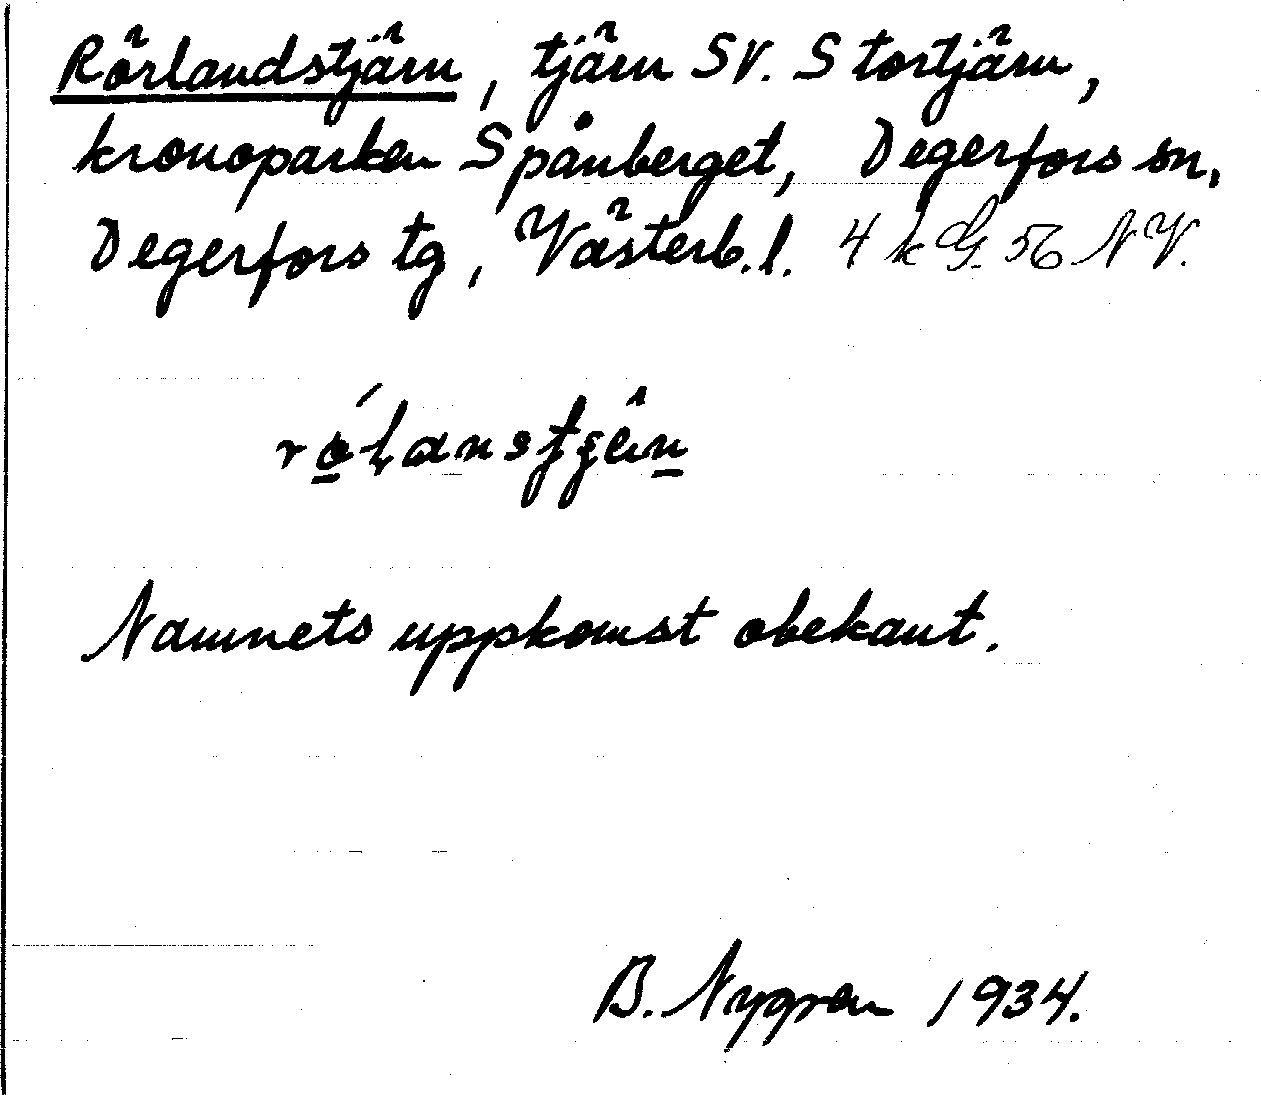 Rörlandstjärn, tjärn SV. Stortjärn,
kronoparken Spånberget, Degerfors sn,
Degerfors tg, Västerb. l. 4 k G. 56 NV.
Namnets uppkomst obekant.
B. Nygren 1934.